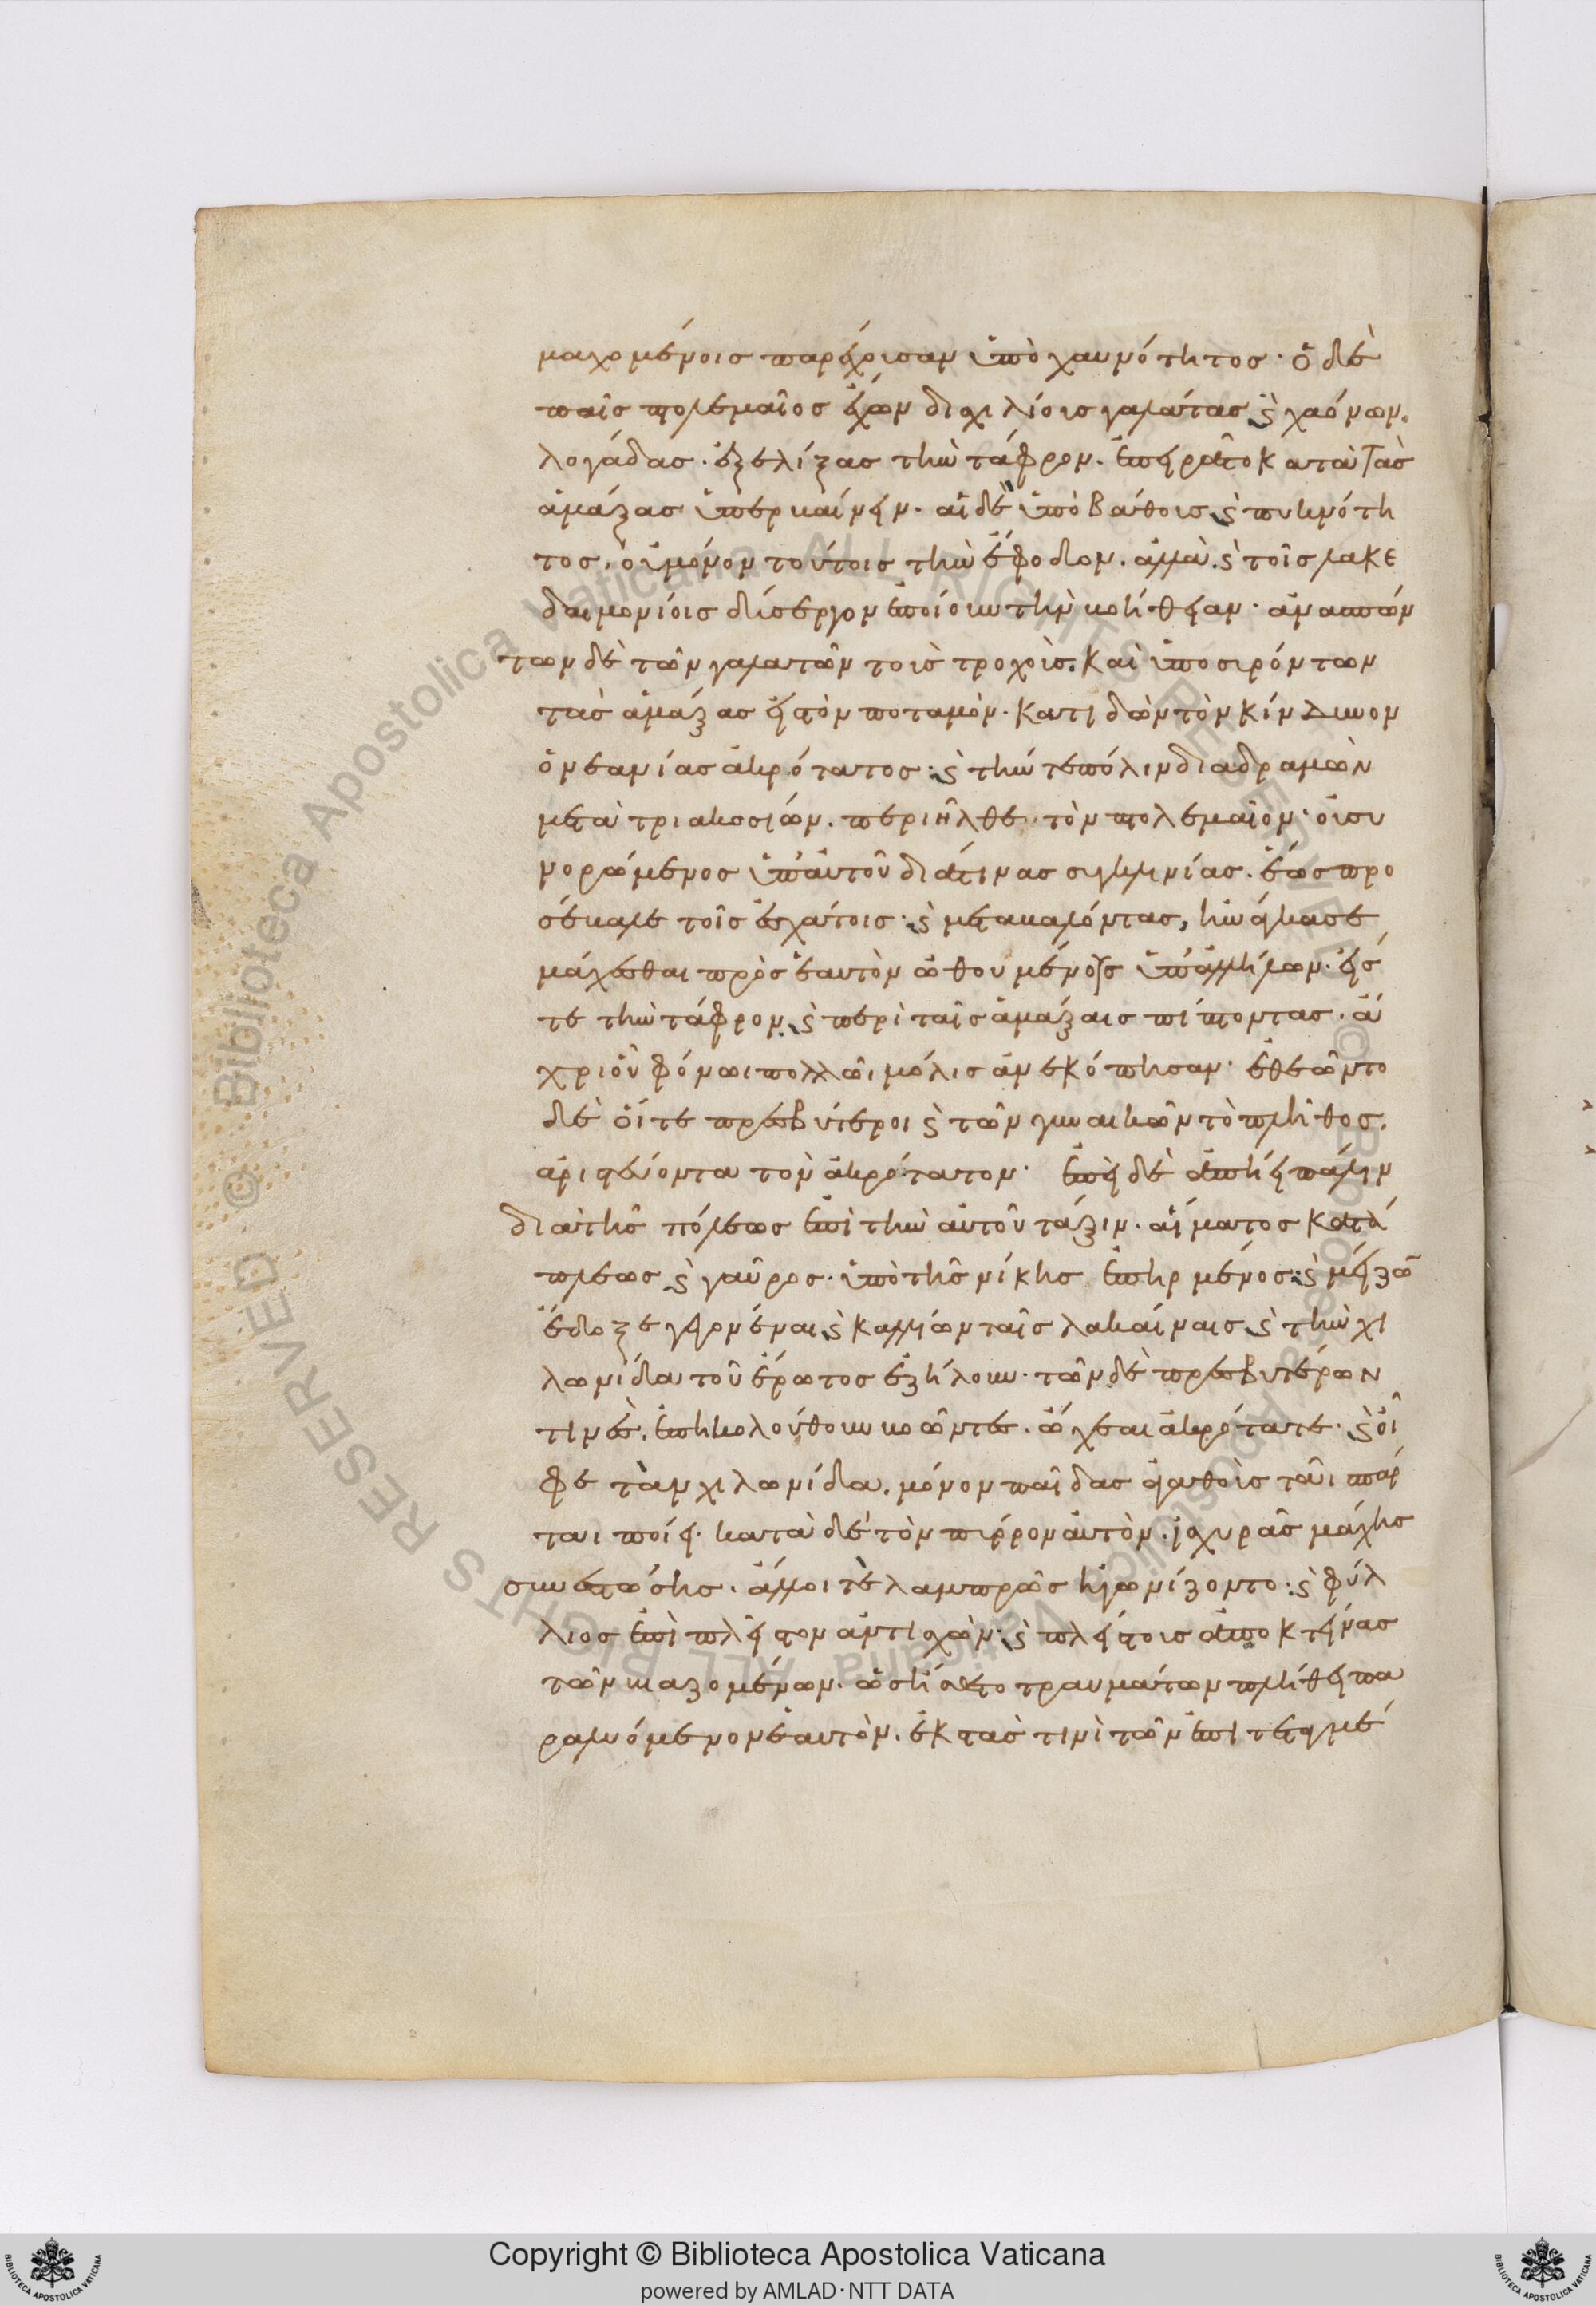 μαχομένοις παρέχουσαν ὑπὸ χαυνότητος· ὁ δὲ
παῖς πτολεμαῖος ἔχων δισχιλίους γαλάτας ϗ χαόνων.
λογάδας· ἐξελίξας τὴν τάφρον. ἐπειρᾶτο κατὰ τὰς
ἁμάξας ὑπερβαίνειν· αἱ δὲ ὑπὸ βάθους ϗ πυκνότη
τος, οὐ μόνον τούτοις τὴν ἔφοδον. ἀλλὰ ϗ τοῖς λακε
δαιμονίοις δύσεργον ἐποίουν τὴν βοήθειαν· ἀνασπών
των δὲ τῶν γαλατῶν τοὺς τροχοὺς. καὶ ὑποσυρόντων
τὰς ἁμάξας εἰς τὸν ποταμὸν. κατιδὼν τὸν κίνδυνον
ὁ νεανίας ἀκρότατος· ϗ τὴν τε πόλιν διαδραμὼν
μετὰ τριακοσίων. περιῆλθε τὸν πτολεμαῖον· οὐ συ
νορώμενος ὑπ' αὐτοῦ διά τινας συγκλινίας. ἕως προ
σέβαλε τοῖς ἐσχάτοις· ϗ μεταβαλόντας, ἠνάγκασε
μάχεσθαι πρὸς ἑαυτὸν ὠθουμένους ὑπ' ἀλλήλων. εἴς
τε τὴν τάφρον ϗ περὶ ταῖς ἁμάξαις πίπτοντας. ἄ
χρι οὗ φόνωι πολλῶι μόλις ἀνεκόπησαν· ἐθεῶντο
δὲ οἵ τε πρεσβύτεροι ϗ τῶν γυναικῶν τὸ πλῆθος.
ἀριστεύοντα τὸν ἀκρότατον· ἐπεὶ δὲ ἀπήει πάλιν
διὰ τῆς πόλεως ἐπὶ τὴν αὑτοῦ τάξιν. αἵματος κατά
πλεως ϗ γαῦρος. ὑπὸ τῆς νίκης ἐπηρμένος· ϗ μείζων
ἔδοξε γεγονέναι ϗ καλλίων ταῖς λακαίναις ϗ τὴν χι
λωνίδα τοῦ ἔρωτος ἐζήλουν· τῶν δὲ πρεσβυτέρων
τινὲς. ἐπηκολούθουν βοῶντες. οἴχεαι ἀκρότατε· ϗ οἶ
φε τὰν χιλωνίδα. μόνον παῖδας ἀγαθοὺς τᾶι σπάρ
ται ποίει. κατὰ δὲ τὸν πύρρον αὐτὸν. ἰσχυρᾶς μάχης
συνεστώσης. ἄλλοι τε λαμπρῶς ἠγωνίζοντο· ϗ φύλ
λιος ἐπὶ πλεῖστον ἀντισχὼν· ϗ πλείστους ἀποκτείνας
τῶν βιαζομένων. ὡς ἤισθετο τραυμάτων πλήθει πα
ραλυόμενον ἑαυτὸν. ἐκστὰς τινὶ τῶν ἐπιτεταγμέ